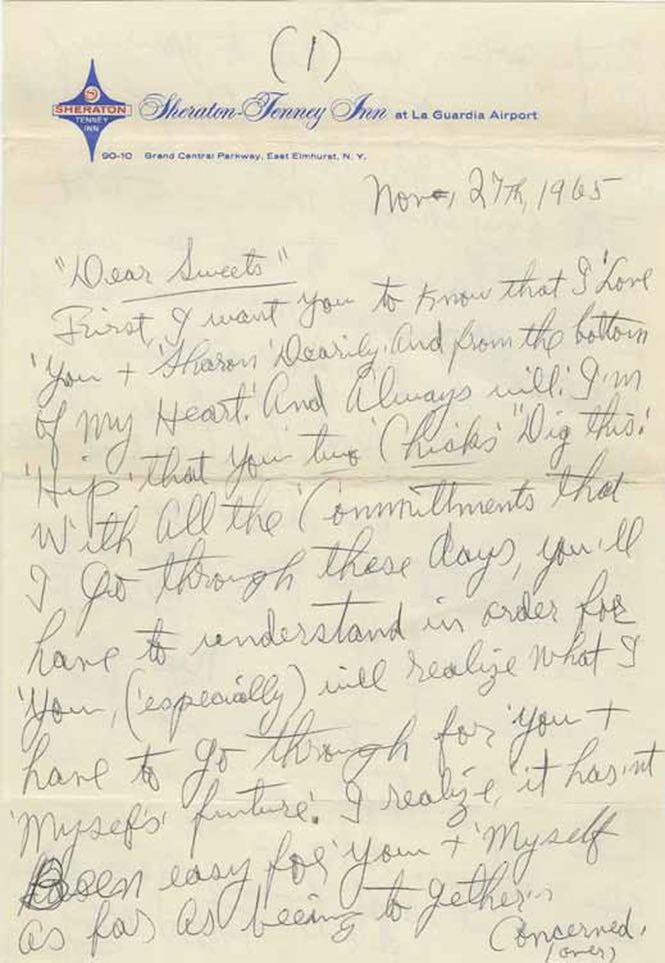 (1)
SHERATON
TENNEY
INN
Sheraton-Tenney Inn at La Guardia Airport
90-10 Grand Central Parkway, East Elmhurst, N. Y.
Nov., 27th, 1965
"Dear Sweets"
First, I want you to know that I 'Love
'You + 'Sharon' Dearily. And from the bottom
of my Heart. And Always will. I'm
'Hip' that you two 'Chicks' "Dig this.'
With All the 'Committments that
I go through these days, you'll
have to understand in order for
'You, (especially) will realize what I
have to go through for 'you +
'Myself's' future. I realize, it has'nt
Been easy for 'you + 'Myself
as far as being to gether's
Concerned,
(over)